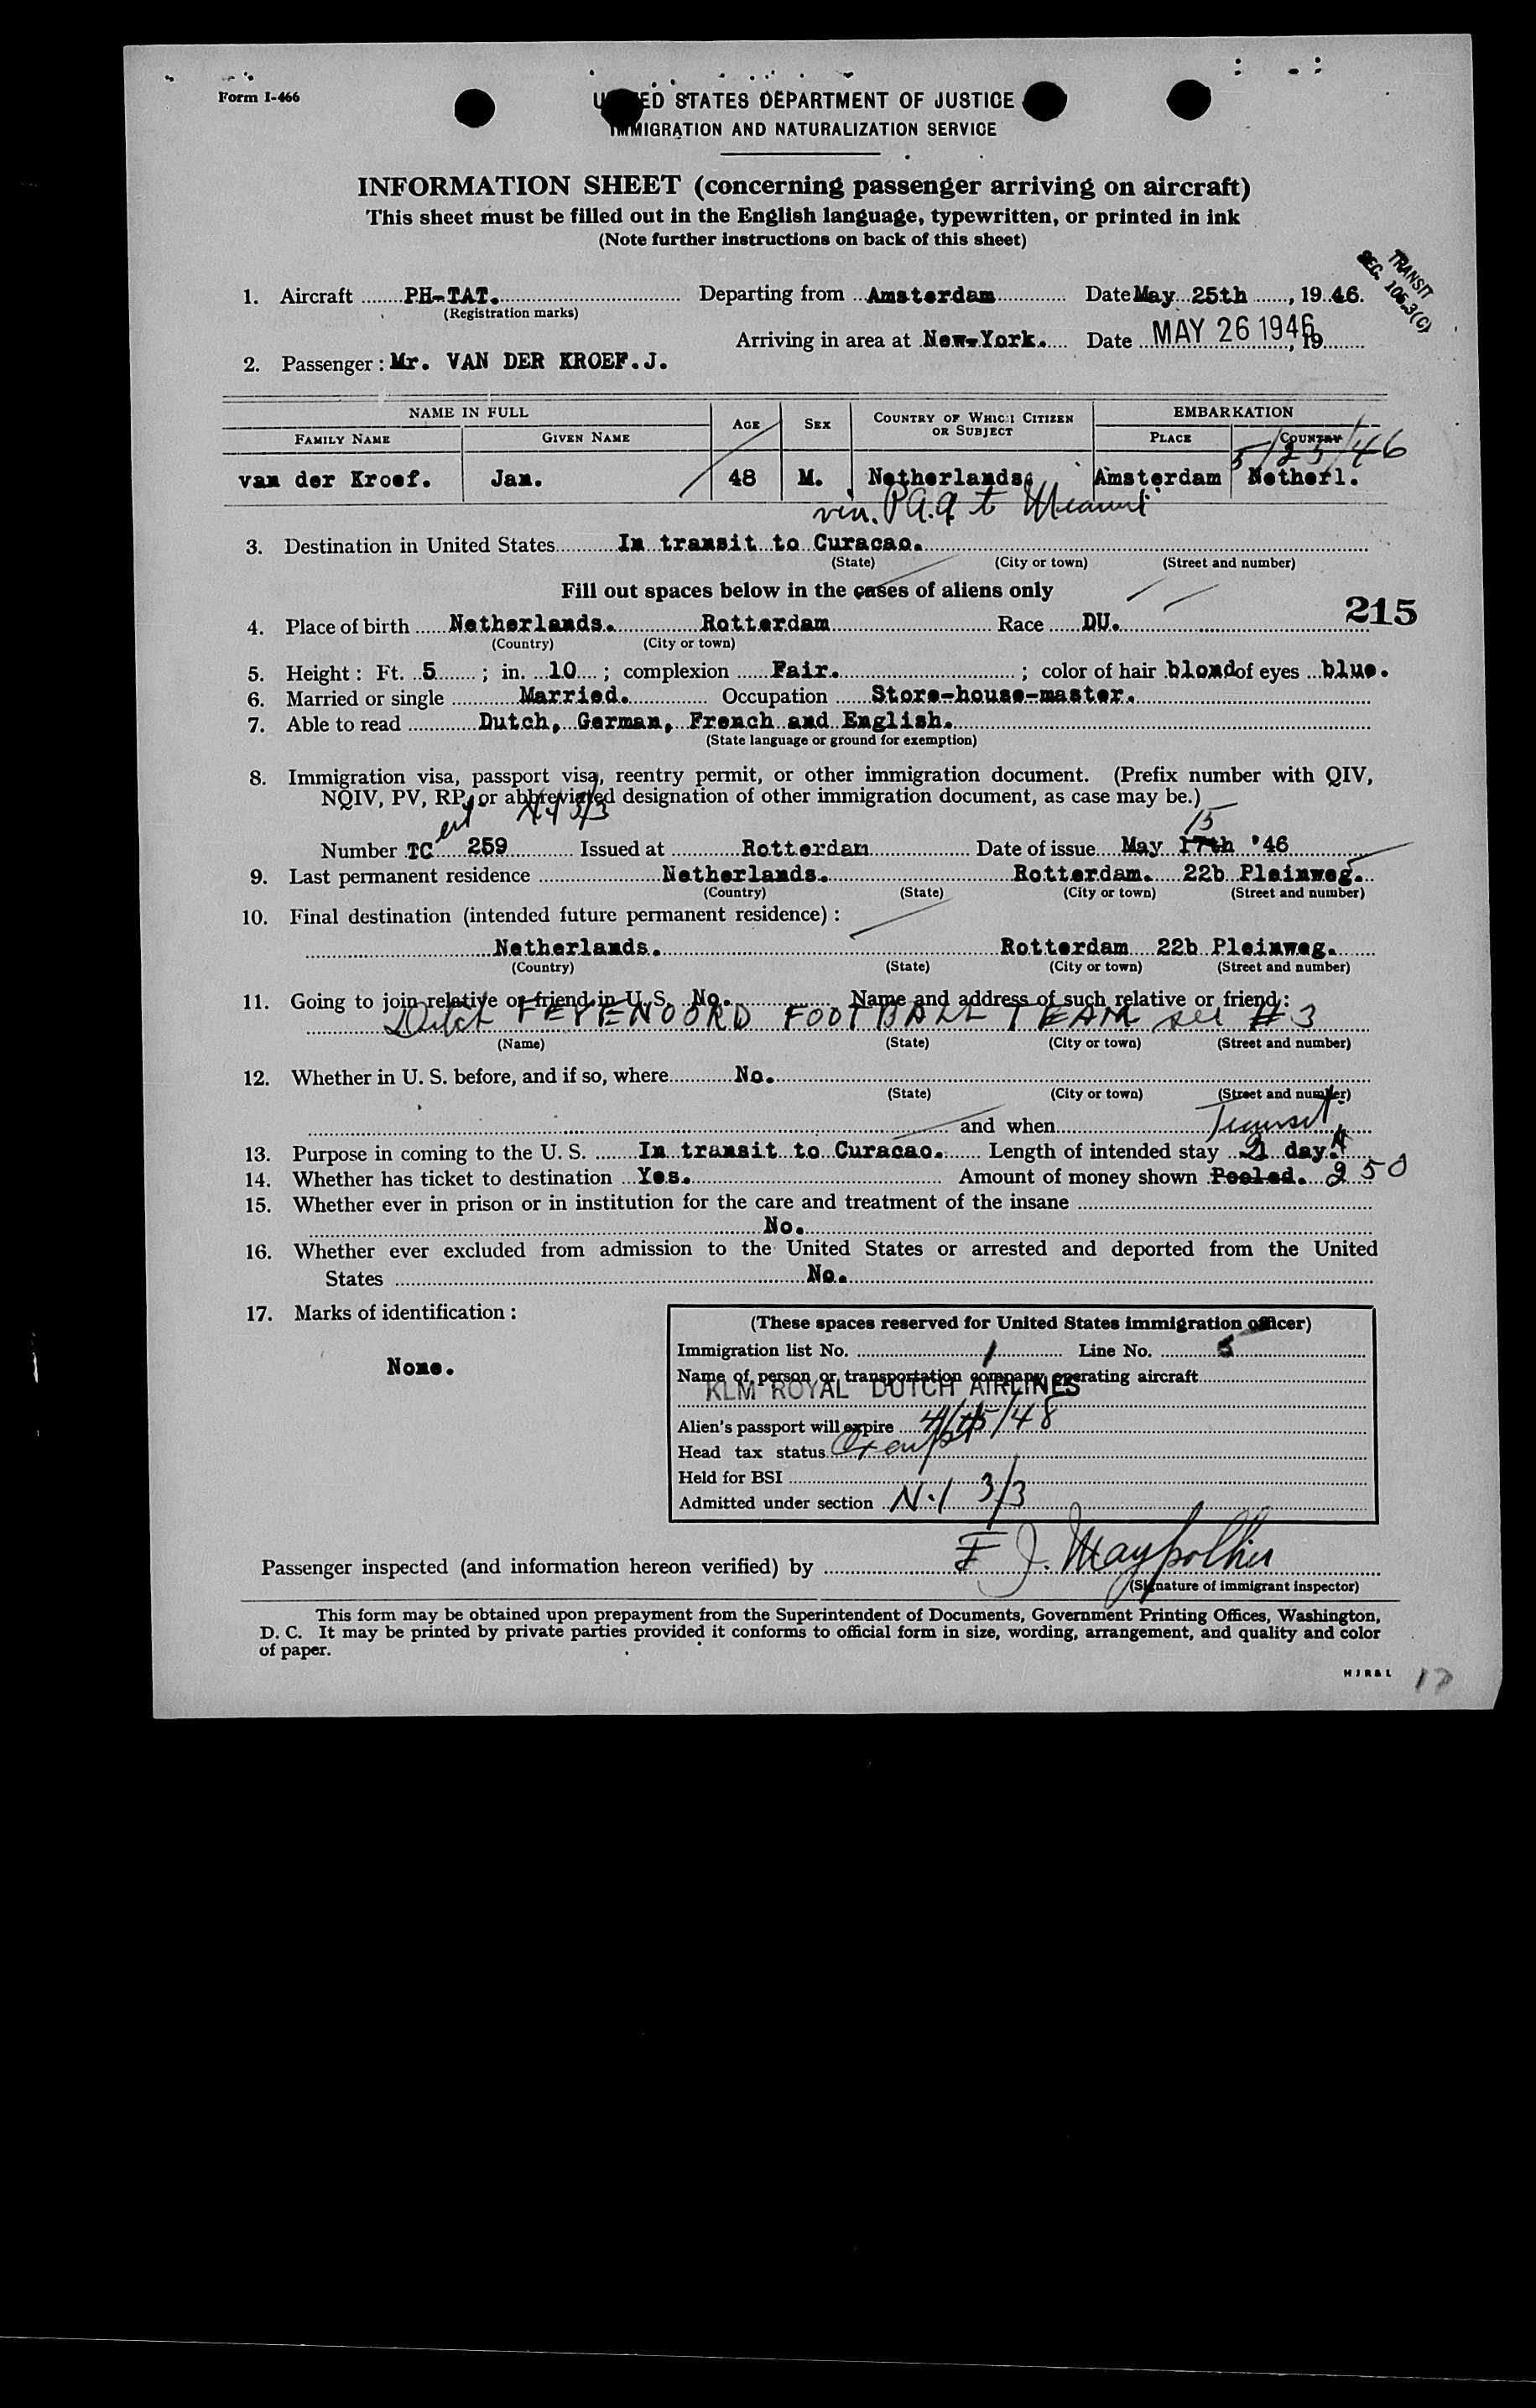 Form I-466
UNITED STATES DEPARTMENT OF JUSTICE
IMMIGRATION AND NATURALIZATION SERVICE
INFORMATION SHEET (concerning passenger arriving on aircraft)
This sheet must be filled out in the English language, typewritten, or printed in ink
(Note further instructions on back of this sheet)
TRANSIT
SEC. 105.3(C)
1. Aircraft PH-TAT. Departing from Amsterdam Date May 25th, 1946.
(Registration marks)
Arriving in area at New-York. Date MAY 26 1946, 19
2. Passenger: Mr. VAN DER KROEF.J.
NAME IN FULL AGE SEX COUNTRY OF WHICH CITIZEN OR SUBJECT EMBARKATION
FAMILY NAME GIVEN NAME PLACE COUNTRY
5/25/46
van der Kroef. Jan. 48 M. Netherlands. Amsterdam Netherl.
via. P.A.A. to Miami
3. Destination in United States In transit to Curacao.
(State) (City or town) (Street and number)
Fill out spaces below in the cases of aliens only
215
4. Place of birth Netherlands. Rotterdam Race DU.
(Country) (City or town)
5. Height: Ft. 5; in. 10; complexion Fair.; color of hair blond of eyes blue.
6. Married or single Married. Occupation Store-house-master.
7. Able to read Dutch, German, French and English.
(State language or ground for exemption)
8. Immigration visa, passport visa, reentry permit, or other immigration document. (Prefix number with QIV,
NQIV, PV, RP, or abbreviated designation of other immigration document, as case may be.)
3/3
15
Number TC 259 Issued at Rotterdam Date of issue May 17th '46
9. Last permanent residence Netherlands. Rotterdam. 22b Pleinweg.
(Country) (State) (City or town) (Street and number)
10. Final destination (intended future permanent residence):
Netherlands. Rotterdam 22b Pleinweg.
(Country) (State) (City or town) (Street and number)
11. Going to join relative or friend in U. S. No. Name and address of such relative or friend:
Dutch FEYENOORD FOOTBALL TEAM see # 3
(Name) (State) (City or town) (Street and number)
12. Whether in U. S. before, and if so, where No.
(State) (City or town) (Street and number)
and when Transit
13. Purpose in coming to the U. S. In transit to Curacao. Length of intended stay 2 day.
14. Whether has ticket to destination Yes. Amount of money shown Pooled. 250
15. Whether ever in prison or in institution for the care and treatment of the insane
No.
16. Whether ever excluded from admission to the United States or arrested and deported from the United
States No.
17. Marks of identification:
None.
(These spaces reserved for United States immigration officer)
Immigration list No. 1 Line No. 5
Name of person or transportation company operating aircraft
KLM ROYAL DUTCH AIRLINES
Alien's passport will expire 4/15/48
Head tax status Exempt
Held for BSI
Admitted under section N.1 3/3
Passenger inspected (and information hereon verified) by F J.
(Signature of immigrant inspector)
This form may be obtained upon prepayment from the Superintendent of Documents, Government Printing Offices, Washington,
D. C. It may be printed by private parties provided it conforms to official form in size, wording, arrangement, and quality and color
of paper.
H J R & L